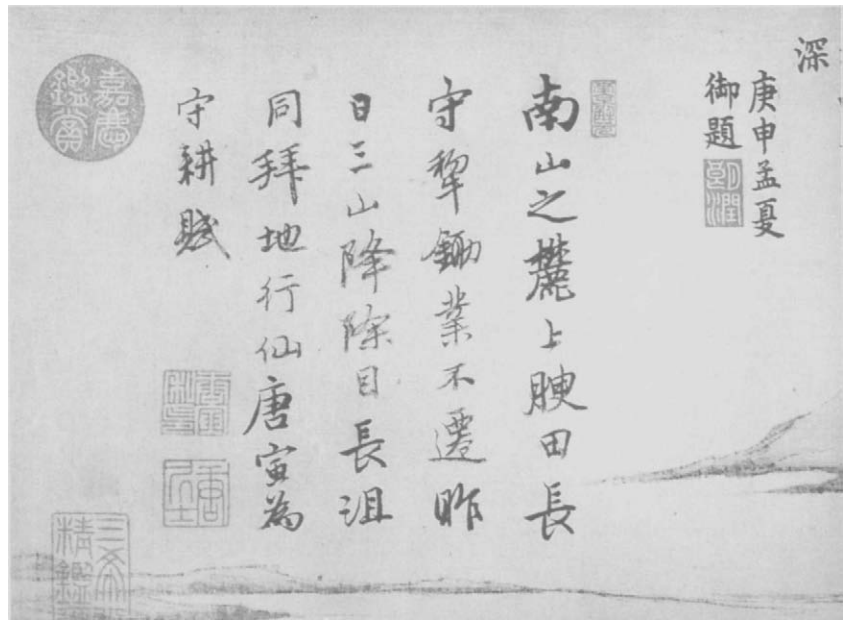 深
庚申孟夏
御題
朗潤
南山之麓上腴田長
守犂鋤業不遷昨
日三山降除目長沮
同拜地行仙唐寅為
守耕賦
嘉慶
鑑賞
三希
精鑑